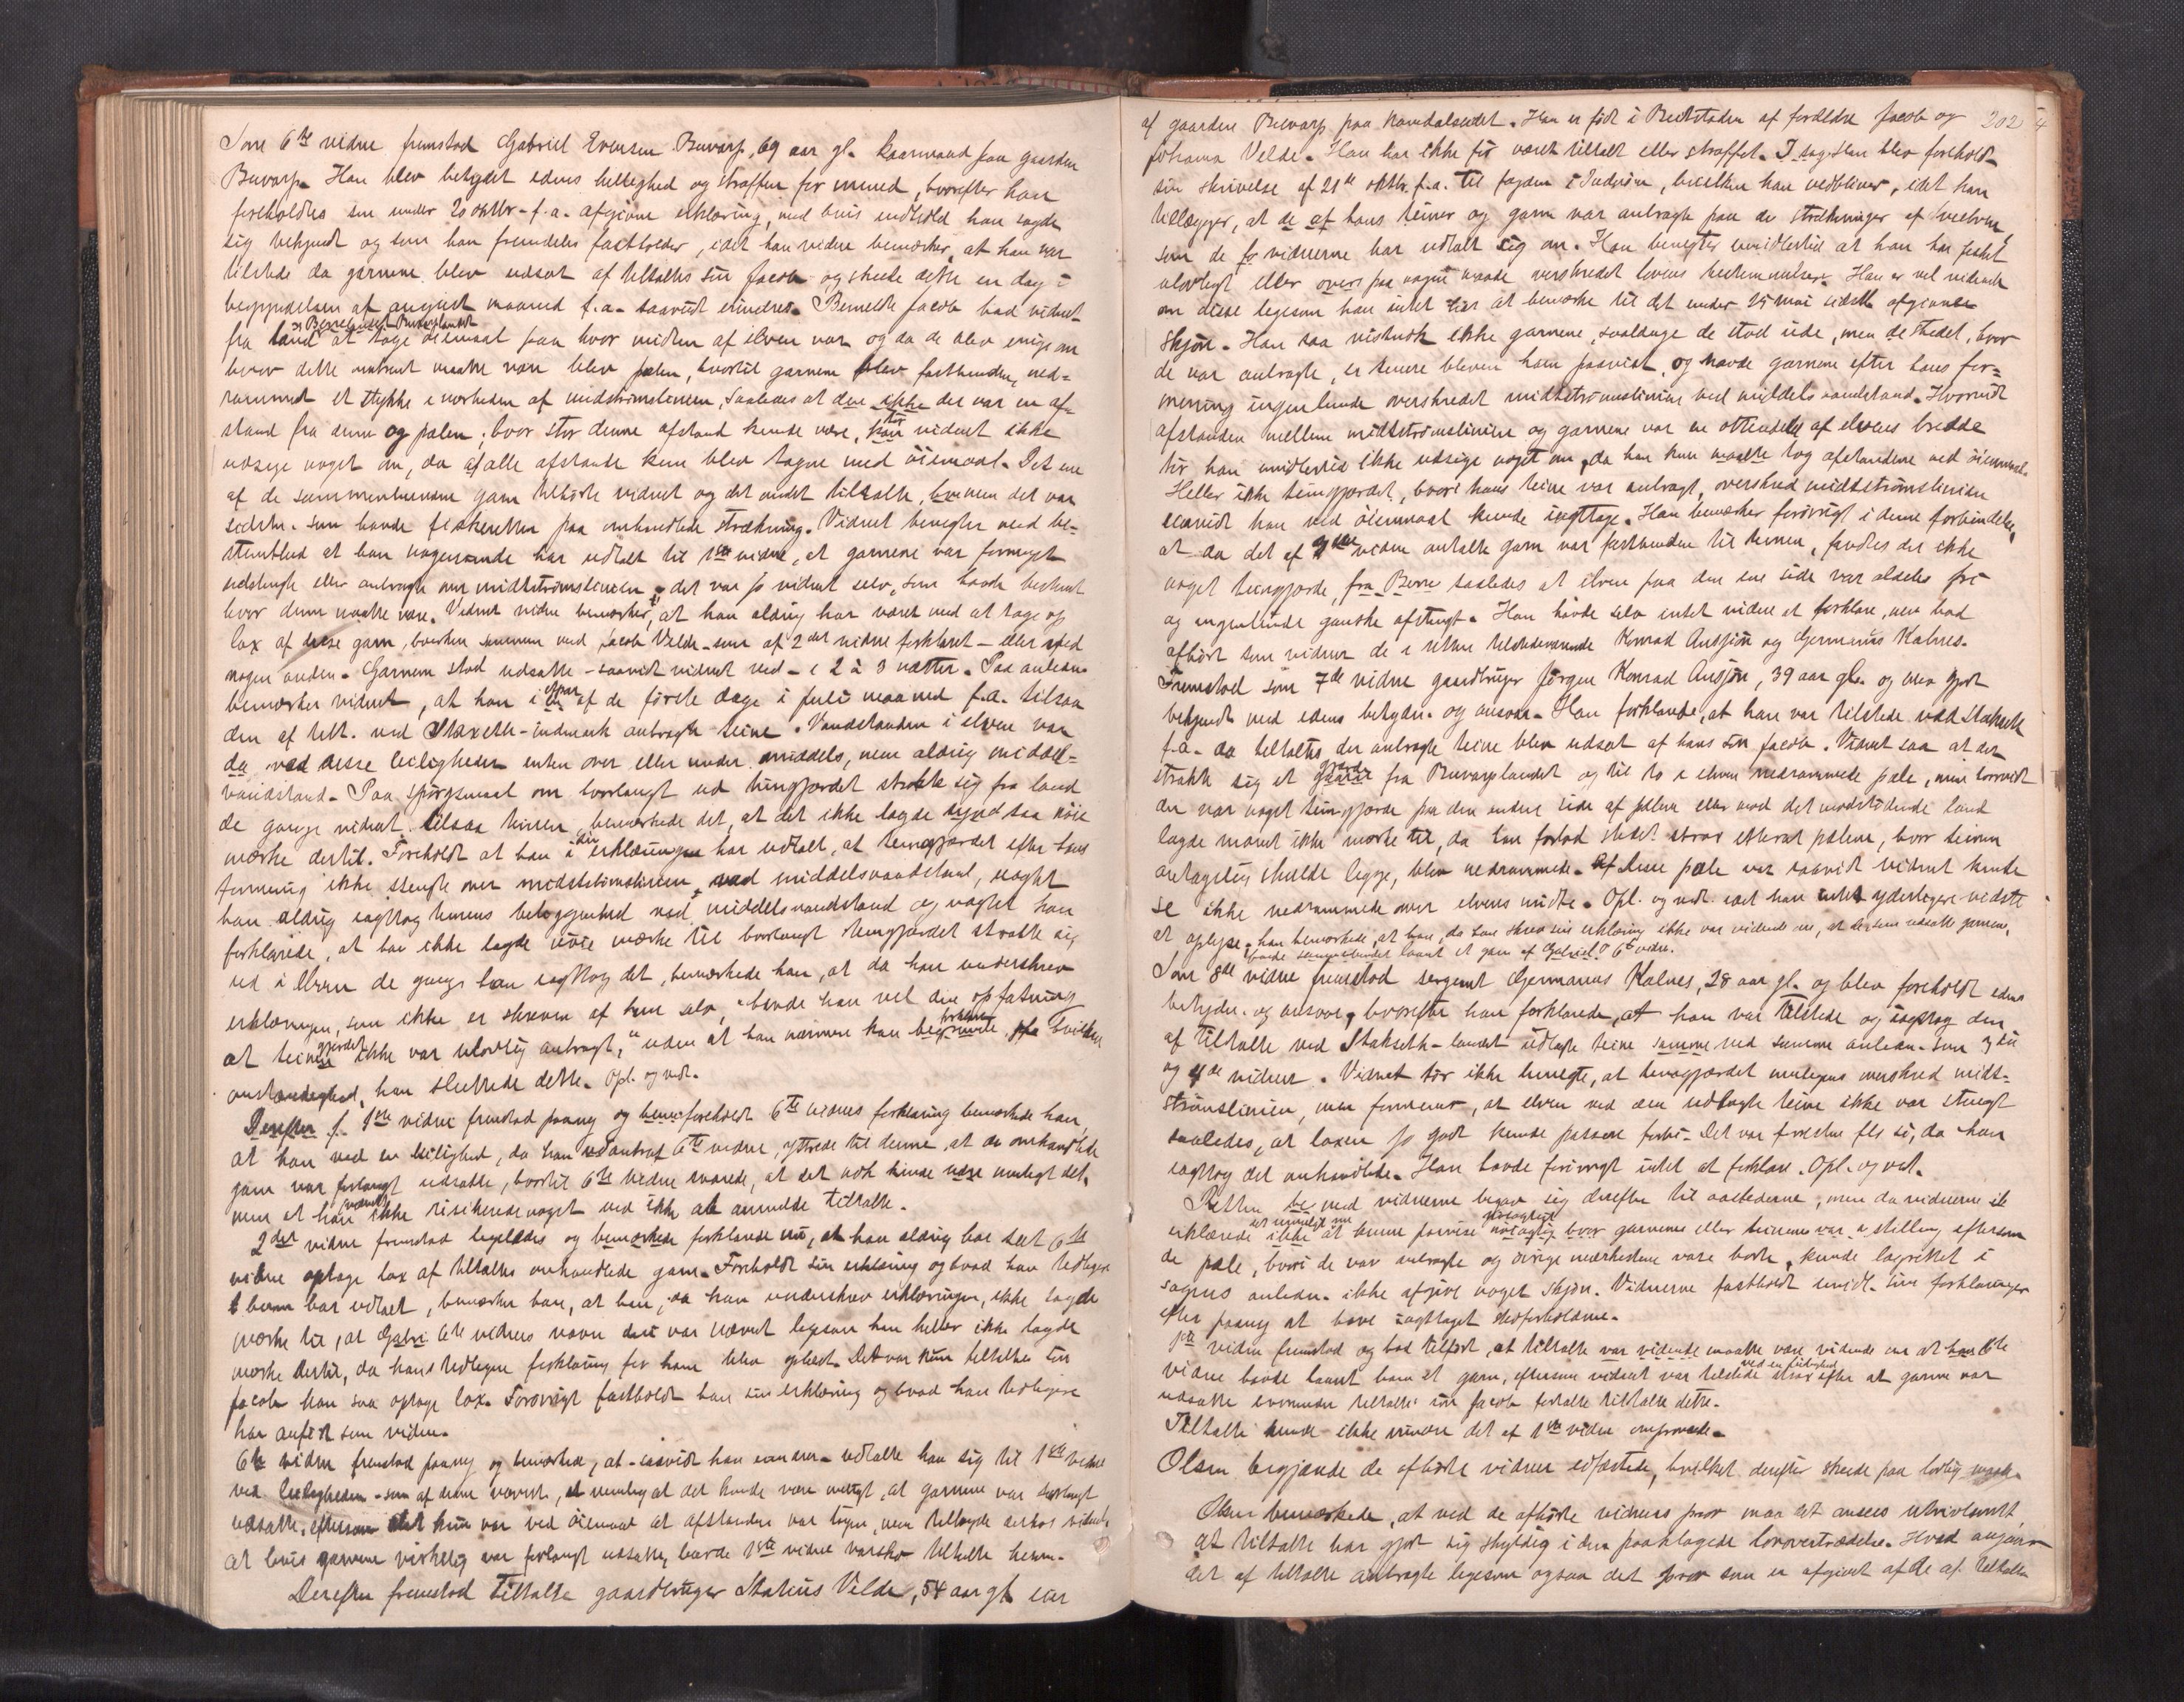 Som 6te vidne fremstod Gabriel Evensen Buvarp, 69 aar gl. kaarmand paa gaarden
Buvarp. Han blev betydet edens hellighed og straffen for mened, hvorefter han
foreholdtes sin under 20 oktbr. f.a. afgivne erklæring, med hvis indhold han sagde
sig bekjendt og som han fremdeles fastholder, idet han vidre bemærker, at han var
tilstede da garnene blev udsat af tiltaltes søn Jacob og skede dette en dag i
begyndelsen af august maaned f.a. saavidt erindres. Bemeldte Jacob bad vidnet
fra land at tage øiemaal paa hvor midten af elven var og da de blev enige om
hvor dette omtrent maatte være blev pælen, hvortil garnene blev fastbunden, ned=
rammet et stykke i nærheden af midstrømslinien, saaledes at den ikke der var en af=
stand fra denne og pælen; hvor stor denne afstand kunde være, kan tør vidnet ikke
udsige noget om, da af alle afstande kun blev tagne med øiemaal. Det ene
af de sammenbundne garn tilhørte vidnet og det andet tiltalte, hvem det var
sidstn. som havde fiskeretten paa omhandlede strækning. Vidnet benegter med be=
stemthed at han nogensinde har udtalt til 1ste vidne, at garnene var formeget
udstengte eller anbragte over midtstrømslinien; det var jo vidnet selv, som havde bestemt
hvor denne maatte være. Vidnet vidre bemærker, at han aldrig har været med at tage op
lax af disse garn, hverken sammen med Jacob Velde - som af 2det vidne forklaret - eller med
nogen anden. Garnene stod udsatte - saavidt vidnet ved - i 2 à 3 nætter. Paa anledn.
bemærker vidnet, at han i et par af de første dage i juli maaned f.a. tilsaa
den af tilt. ved Staxeth-indmark anbragte teine. Vandstanden i elven var
da ved disse leiligheder enten over eller under middels, men aldrig middel=
vandstand. Paa spørgsmaal om hvorlangt ud teingjærdet strakte sig fra land
de gange vidnet tilsaa teinen, bemærkede det, at det ikke lagde saa nøie
mærke dertil. Foreholdt at han i sin erklæringen har udtalt, at teingjærdet efter hans
formening ikke stengte over midtstrømslinien ved middelsvandstand, uagtet
han aldrig iagttog teinens beliggenhed ved middelsvandstand og uagtet han
forklarede, at han ikke lagde nøie mærke til hvorlangt teingjærdet strakte sig
ud i elven de gange han iagttog det, bemærkede han, at da han underskrev
erklæringen, som ikke er skreven af ham selv, "havde han vel den opfatning
at teinen gjærdet ikke var ulovlig anbragt," uden at han nærmere kan begrunde forklare, paa hvilken
omstændighed, han sluttede dette. Opl. og vedt.
Derefter f. 1ste vidne fremstod paany og foreholdt 6te vidnes forklaring bemærkede han,
at han ved en leilighed, da han antraf 6te vidne, yttrede til denne, at de omhandlede
garn var forlangt udsatte, hvortil 6te vidne svarede, at det nok kunde være muligt det,
men at han nærmest ikke risikerede noget ved ikke at anmelde tiltalte.
2det vidne fremstod ligeledes og bemærkede forklarede nu, at han aldrig har seet 6te
vidne optage lax af tiltaltes omhandlede garn. Foreholdt sin erklæring og hvad han tidligere
herom har udtalt, bemærker han, at han, da han underskrev erklæringen, ikke lagde
mærke til, at Gabri 6te vidnes navn deri var nævnt ligesom han heller ikke lagde
mærke dertil, da hans tidligere forklaring for ham blev oplæst. Det var kun tiltaltes søn
Jacob han saa optage lax. Forøvrigt fastholdt han sin erklæring og hvad han tidligere
har anført som vidne.
6te vidne fremstod paany og bemærkede, at - saavidt han erindrer - udtalte han sig til 1ste vidne
ved leiligheden - som af denne nævnt, at nemlig at det kunde være muligt, at garnene var forlangt
udsatte, eftersom det kun var ved øiemaal at afstanden var tagen, men tilføyde derhos vidnet,
at hvis garnene virkelig var forlangt udsatte, burde 1ste vidne varsko tiltalte herom.
Derefter fremstod tiltalte gaardbruger Statius Velde, 54 aar gl. eier
af gaarden Buvarp paa Namdalseidet. Han er født i Beitstaden af forældre Jacob og 202
Johanna Velde. Han har ikke før været tiltalt eller straffet. I sagen han blev foreholdt
sin skrivelse af 21de oktbr. f.a. til fogden i Inderøen, hvilken han vedbliver, idet han
tillægger, at de af hans teiner og garn var anbragte paa de strækninger af elven,
som de vidnerne har udtalt sig om. Han benegter imidlertid at han har fisket
ulovligt eller overs paa nogen maade overskredet lovens bestemmelser. Han er vel vidende
om disse ligesom han intet har at bemærke til det under 29 mai sidstl. afgivne
skjøn. Han saa vistnok ikke garnene, saalænge de stod ude, men de stedet, hvor
de var anbragte, er senere bleven ham paavist, og havde garnene efter hans for=
mening ingenlunde overskredet midtstrømslinien ved middels vandstand. Hvorvidt
afstanden mellem midtstrømslinien og garnene var en ottendedel af elvens bredde
tør han imidlertid ikke udsige noget om, da han kun maatte tog afstandene ved øiemaal.
Heller ikke teingjærdet, hvori hans teine var anbragt, overskred midtstrømslinien
saavidt han ved øiemaal kunde iagttage. Han bemærker forøvrigt i denne forbindelse,
at da det af vidne omtalte garn var fastbunden til teinen, fandtes der ikke
noget teingjærde fra Berre saaledes at elven paa den ene side var aldeles fri
og ingenlunde ganske afstengt. Han havde selv intet vidre at forklare, men bad
afhørt som vidner de i retten tilstedeværende Konrad Ansjøn og Germanus Kalnes.
Fremstod som 7de vidne gaardbruger Jørgen Konrad Ansjøn, 39 aar gl. og blev gjort
bekjendt med edens betydn. og ansvar. Han forklarede, at han var tilstede ved Stakseth
f.a. da tiltaltes der anbragte teine blev udsat af hans søn Jacob. Vidnet saa at der
strakk sig et gjærde fra Buvarplandet og til to i elven nedrammede pæle, men hvorvidt
der var noget teingjærde paa den anden side af pælene eller mod det modstødende land
lagde vidnet ikke mærke til, da han forlod stedet strax efterat pælene, hvor teinen
antagelig skulde ligge, blev nedrammede. Disse pæle var saavidt vidnet kunde
se ikke nedrammede over elvens midte. Opl. og vedt. idet han intet yderligere vidste
at oplyse. han bemærkede, at han, da han skrev sin erklæring ikke var vidende om, at de som udsatte garnene,
havde sammenbundet laant et garn af Gabriel 6te vidne.
Som 8de vidne fremstod sergent Germanus Kalnes, 28 aar gl. og blev foreholdt edens
betydn. og ansvar, hvorefter han forklarede, at han var tilstede og iagttog den
af tiltalte ved Stakseth-landet udlagte teine samme ved samme anledn. som 3die
og 4de vidner. Vidnet tør ikke benegte, at teingjærdet muligens overskred midt=
strømslinien, men formener, at elven ved den udlagte teine ikke var stengt
saaledes, at laxen jo godt kunde passere forbi. Det var forresten flo sø, da han
iagttog det omhandlede. Han havde forøvrigt intet at forklare. Opl. og vedt.
Retten be med vidnerne begav sig derefter til aastederne, men da vidnerne
erklærede det umuligt nu ikke at kunne paavise nøiagtig nøiagtigt hvor garnenes eller teinenes var stilling eftersom
de pæle, hvori de var anbragte og øvrige mærkestene vare borte, kunde lagrettet i
sagens anledn. ikke afgive noget skjøn. Vidnerne fastholdt imidl. sine forklaringer
efter paany at have iagttaget stedforholdene.
1ste vidne fremstod og bad tilført, at tiltalte var vidende maatte være vidende om at 6te
vidne havde laant ham et garn, eftersom vidnet var tilstede ved en leilighed strax efter at garnene var
udsatte hvorunder tiltaltes søn Jacob fortalte tiltalte dette.
Tiltalte kunde ikke erindre det af 1ste vidne omprovede.
Olsen begjærede de afhørte vidner edfæstede, hvilket derefter skede paa lovlig maade.
Olsen bemærkede, at ved de afhørte vidners prov maa det ansees utvivlsomt,
at tiltalte har gjort sig skyldig i den paaklagede lovovertrædelse. Hvad angaar
det af tiltalte anbragte ligesom ogsaa det prov som er afgivet af de af tiltalte